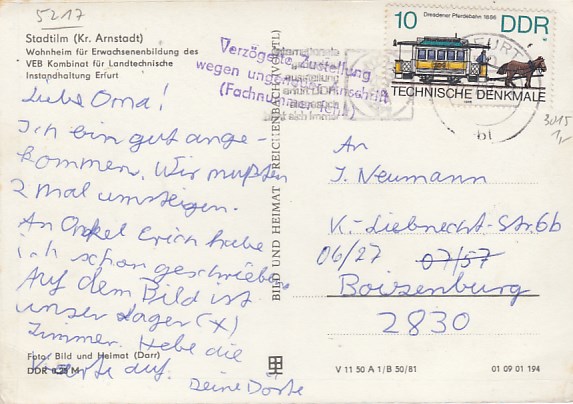 5217
Stadtilm (Kr. Arnstadt)
Wohnheim für Erwachsenenbildung des
VEB Kombinat für Landtechnische
Instandhaltung Erfurt
Liebe Oma!
Ich bin gut ange-
kommen. Wir mußten
2 mal umsteigen.
An Onkel Erich habe
ich schon geschrieben
Auf dem Bild ist
unser Lager (x)
Zimmer. Hebe die
Karte auf.
Deine Dörte
Foto: Bild und Heimat (Darr)
DDR 0,20 M
Verzögerte Zustellung
wegen ungenauer Anschrift
(Fachnummer fehlt)
BILD UND HEIMAT REICHENBACH (VOGTL)
10
Dresdener Pferdebahn 1886
DDR
TECHNISCHE DENKMALE
ERFURT
bl
3015
An
J. Neumann
K.-Liebnecht-Str. 6b
06/27 07/57
Boizenburg
2830
V 11 50 A 1/B 50/81
01 09 01 194